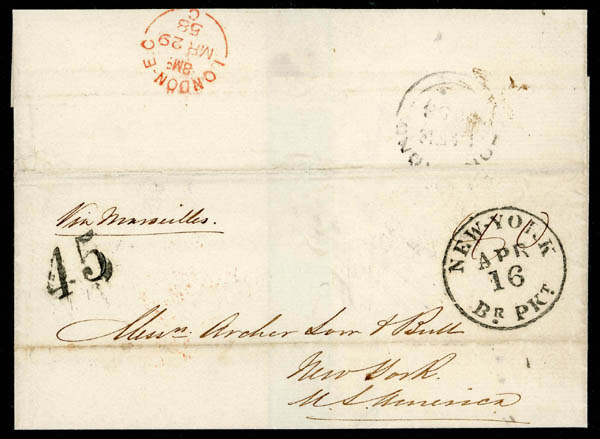 LONDON-EC
8Mg
MR 29
58
C
Via Marseilles.
45
NEW-YORK
APR
16
BR PKT.
Messrs. Archer Low & Bull
New York.
U. S. America